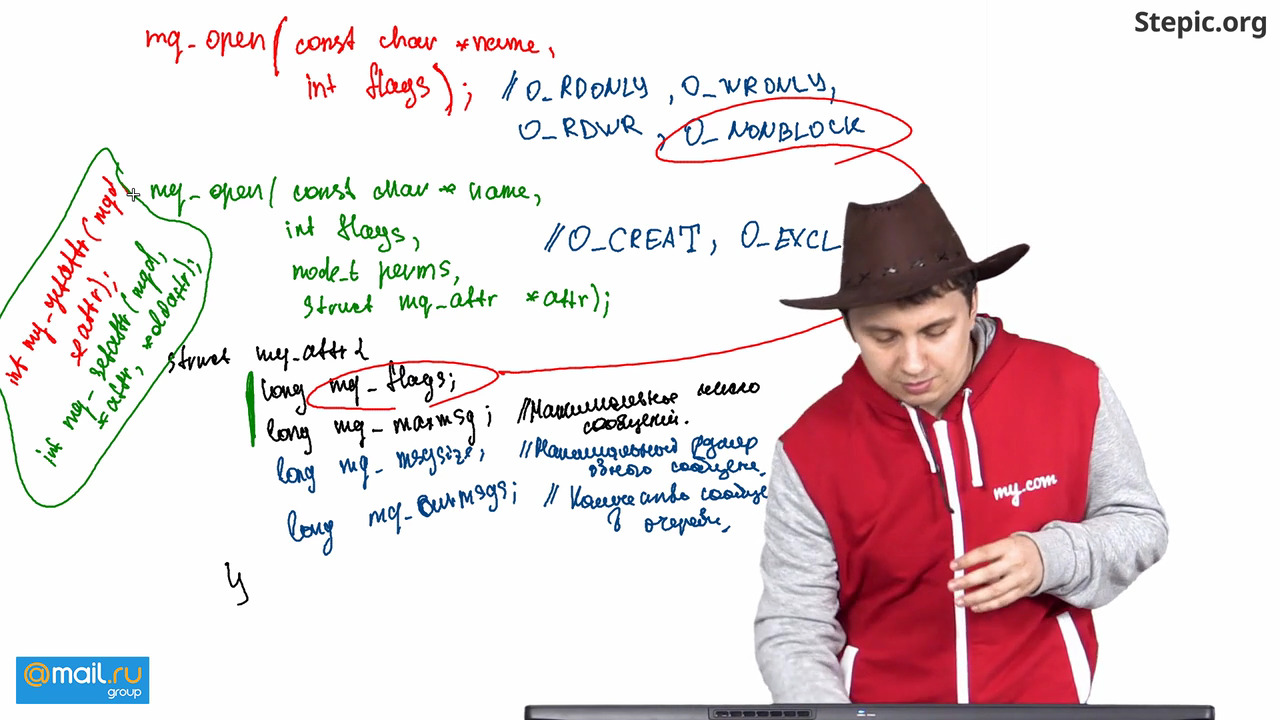 Stepic.org
mq_open( const char *name,
int flags); // O_RDONLY, O_WRONLY,
O_RDWR, O_NONBLOCK
mq_open( const char * name,
int flags, // O_CREAT, O_EXCL
mode_t perms,
struct mq_attr *attr);
int mq_getattr( mqd
*attr);
int mq_setattr( mqd,
*attr, *oldattr);
struct mq_attr {
long mq_flags;
long mq_maxmsg; // Максимальное число
сообщений.
long mq_msgsize; // Максимальный размер
одного сообщен.
long mq_curmsgs; // Количество сообще
в очереди,
}
my.com
@mail.ru
group